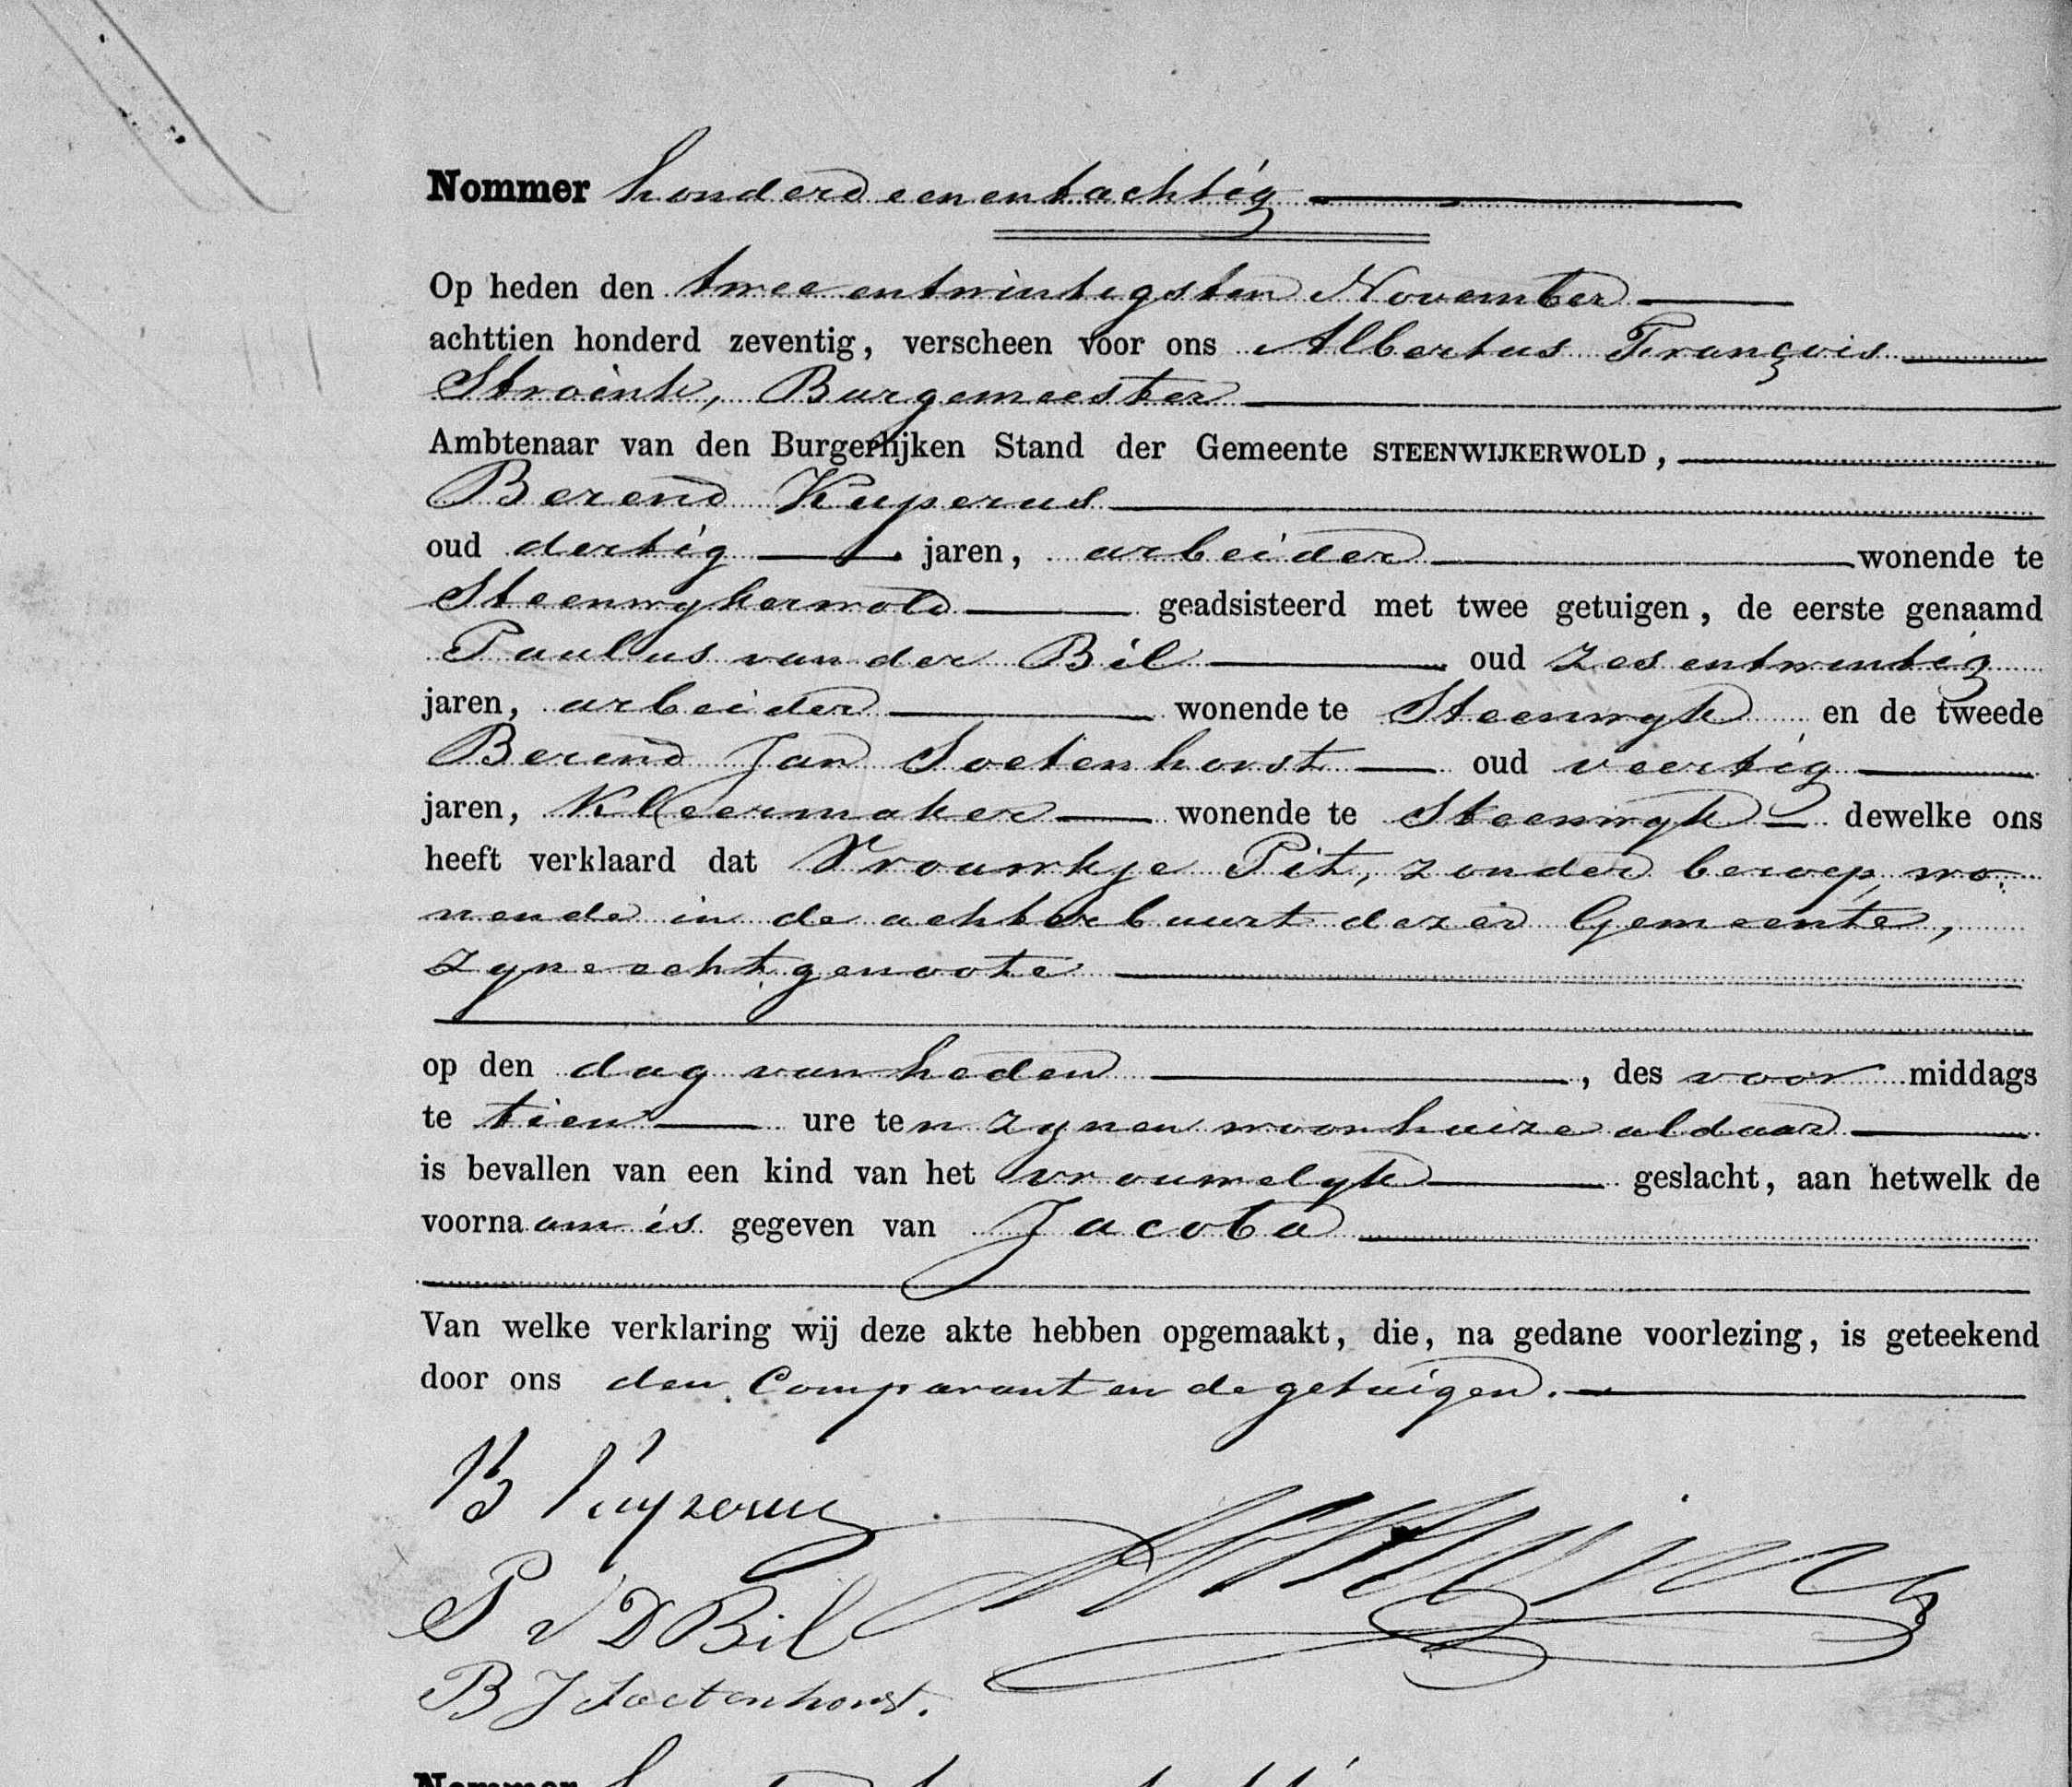 Nommer honderd een en tachtig
Op heden den twee en twintigsten November
achttien honderd zeventig, verscheen voor ons Albertus François
Stroink, Burgemeester
Ambtenaar van den Burgerlijken Stand der Gemeente STEENWIJKERWOLD,
Berend Kuperus
oud dertig jaren, arbeider wonende te
Steenwykerwold geadsisteerd met twee getuigen, de eerste genaamd
Paulus van der Bil oud zes en twintig
jaren, arbeider wonende te Steenwyk en de tweede
Berend Jan Soetenhorst oud veertig
jaren, Kleermaker wonende te Steenwyk dewelke ons
heeft verklaard dat Vrouwkje Pit, zonder beroep, wo-
nende in de achterbuurt dezer Gemeente,
zyne echtgenoote
op den dag van heden, des voor middags
te tien ure ten zynen woonhuize aldaar
is bevallen van een kind van het vrouwelyk geslacht, aan hetwelk de
voornaam is gegeven van Jacoba
Van welke verklaring wij deze akte hebben opgemaakt, die, na gedane voorlezing, is geteekend
door ons den Comparant en de getuigen.
B Kuperus
P v D Bil
B J Soetenhorst.
Nommer